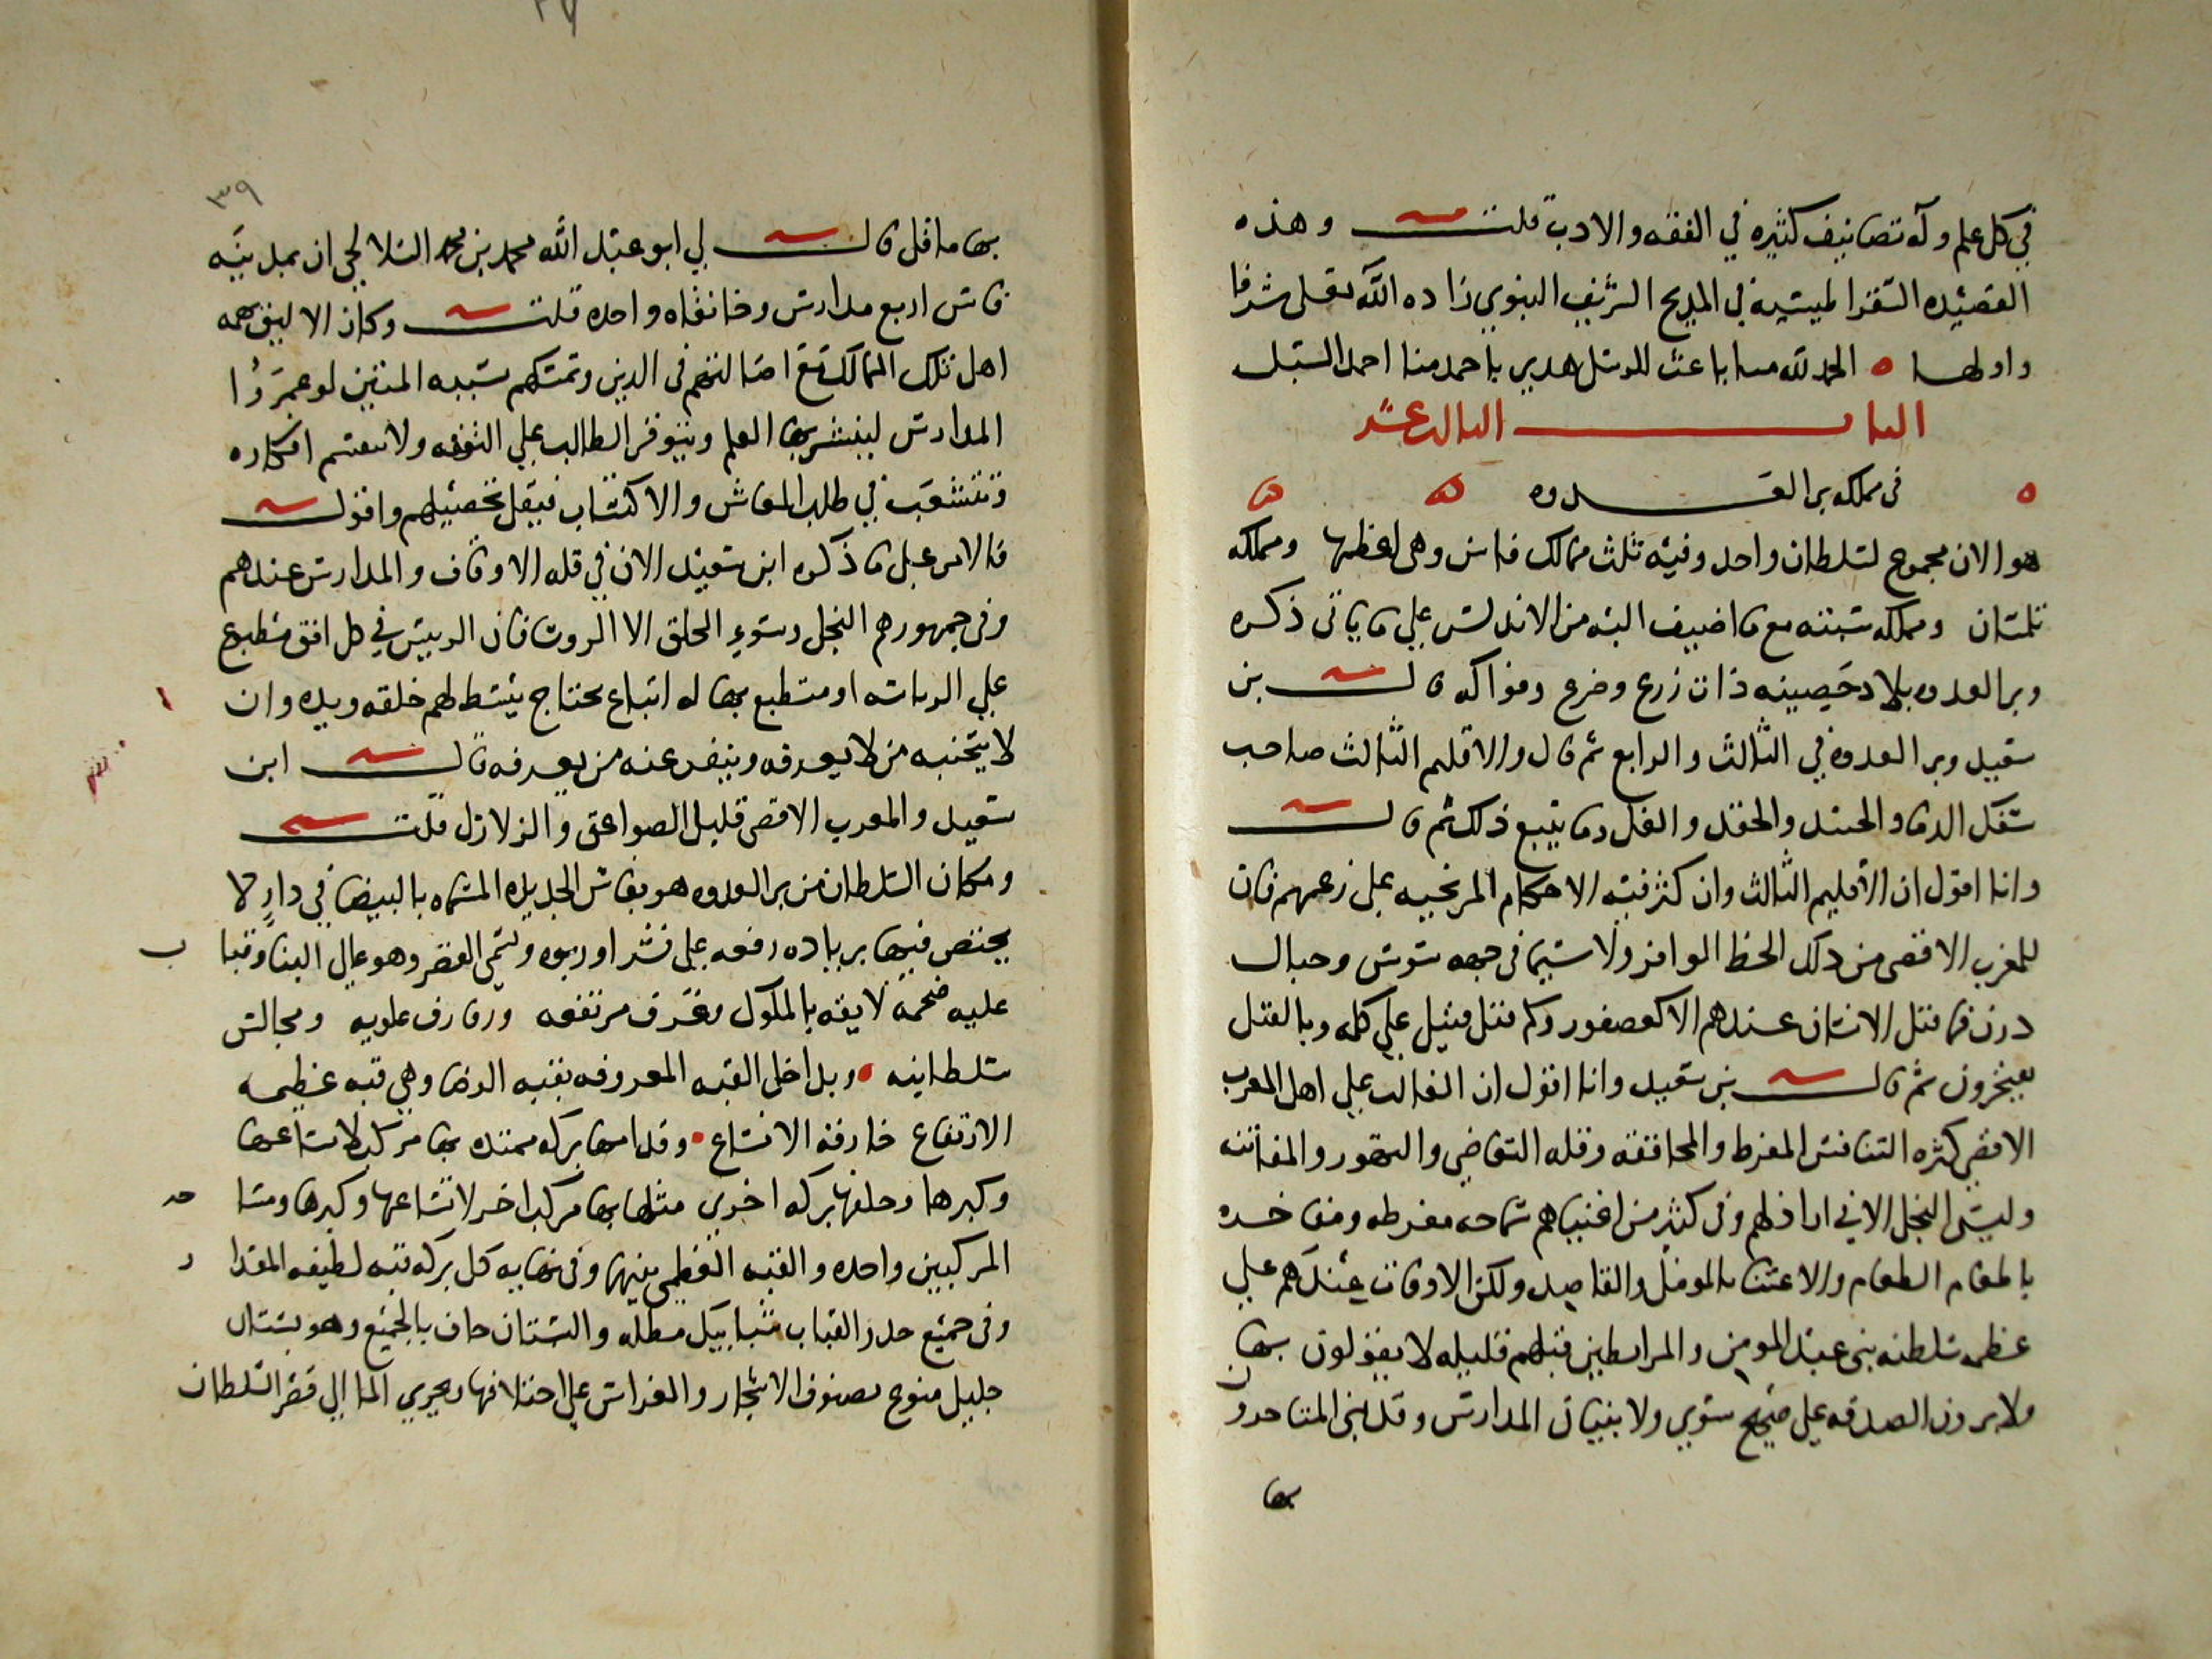 في كل علم وله تصانيف كثيره في الفقه والادب قلت وهذه
القصيده الشقراطيسيه في المديح الشريف النبوي زاده الله تعلى شرفا
واولها الحمد لله منا باعث الرسل هدى باحمد منا احمد السبل
الباب الثالث عشر
في مملكه بر العدوه
هو الان مجموع لسلطان واحد وفيه ثلث ممالك فاس وهي اعظمها ومملكه
تلمسان ومملكه سبته مع ما اضيف اليه من الاندلس على ما ياتى ذكره
وبر العدوه بلاد خصيبه ذات زرع وضرع وفواكه قال بن
سعيد وبر العدوه في الثالث والرابع ثم قال والاقليم الثالث صاحب
سفك الدما والحسد والحقد والغل وما يتبع ذلك ثم قال
وانا اقول ان الاقليم الثالث وان كثرفيه الاحكام المريخيه على زعمهم فان
للمغرب الاقصى من ذلك الحظ الوافر ولا سيما في جهه سوس وجبال
درن فما قتل الانسان عندهم الا كعصفور وكم قتل قتيل على كله وبالقتل
يفخرون ثم قال بن سعيد وانا اقول ان الغالب على اهل المغرب
الاقصى كثره التنافس المفرط والمحاققه وقله التغاضي والتهور والمفاتنه
وليس البخل الا في اراذلهم وفي كثير من اغنيايهم سماحه مفرطه ومفاخره
باطعام الطعام والاعتنا بالموفد والقاصد ولكن الاوقاف عندهم على
عظمه سلطنه بنى عبد المومن والمرابطين قبلهم قليله لا يقولون بها
ولا يرون الصدقه على صحيح سوي ولا بنيان المدارس وقد بنى المتاخرون
بها
٣٩
بها ما قل قال لي ابو عبد الله محمد بن محمد السلالجي ان بمدينه
فاس اربع مدارس وخانقاه واحده قلت وكان الاليق بهمه
اهل تلك الممالك مع اصالتهم في الدين وتمسكهم بسببه المتين لو عمروا
المدارس لينشر بها العلم ويتوفر الطالب على التفقه ولا تنقسم افكاره
وتتشعب في طلب المعاش والاكتساب فيقل تحصيلهم واقول
فالامر على ما ذكره ابن سعيد الان في قله الاوقاف والمدارس عندهم
وفي جمهورهم البخل وسوء الخلق الا الروسا فان الرييس في كل افق منطبع
على الرياسه او متطبع بها له اتباع يحتاج يبسط لهم خلقه ويده وان
لا يتجنبه من لا يعرفه وينفر عنه من يعرفه قال ابن
سعيد والمغرب الاقصى قليل الصواعق والزلازل قلت
ومكان السلطان من بر العدوه هو بفاس الجديده المسماه بالبيضا في دار لا
يختص فيها بزياده رفعه على نشز او ربوه وسمى القصر وهو عالي البنا وقبا ب
عليه ضخمة لايقه بالملوك وغرف مرتفعه ورفارف علويه ومجالس
سلطانيه وبداخل القبه المعروفه بقبه الرضا وهي قبه عظيمه
الارتفاع خارقه الاتساع وقدامها بركه ممتده بها مركب لاتساعها
وكبرها وخلفها بركه اخرى مثلها بها مركب اخر لاتساعها وكبرها ومسا حه
المركبين واحده والقبه العظمى بينهما وفي نهايه كل بركه قبه لطيفه المقدا ر
وفي جميع جدر القباب شبابيك مطله والبستان حاف بالجميع وهو بستان
جليل منوع بصنوف الاشجار والغراس على اختلافها ويجري الما الى قصر السلطان